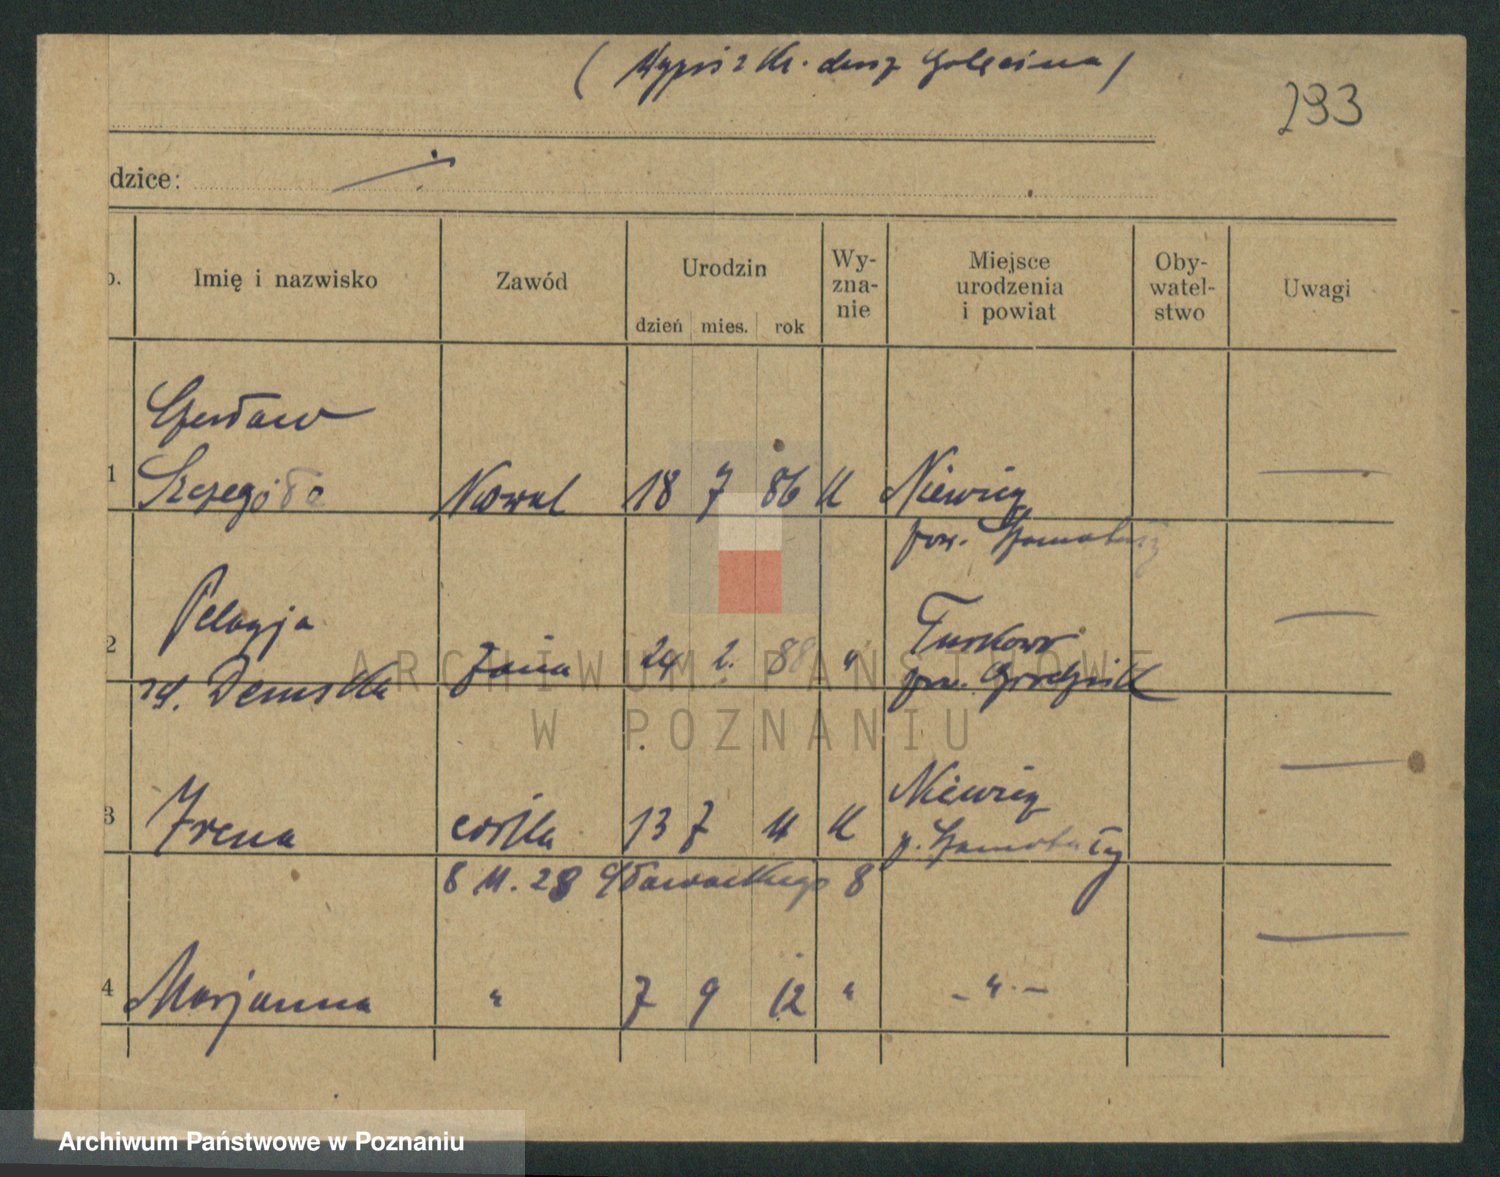 ( Wypis z Kr. dusz Golęcina )
293
dzice:
o. Imię i nazwisko Zawód Urodzin dzień mies. rok Wy-zna-nie Miejsce urodzenia i powiat Oby-watel-stwo Uwagi
Czesław
1 Szczegóła Kowal 18 7 86 K Niewierz
pow. Szamotuły
Pelagja
2 żona 24 2. 88 " Turkowo
ur. Demska pow. Grodzisk
3 Irena córka 13 7 11 K Niewierz
p. Szamotuły
8 11. 28 8
4 Marjanna " 7 9 12 " - " -
ARCHIWUM PAŃSTWOWE
W POZNANIU
Archiwum Państwowe w Poznaniu